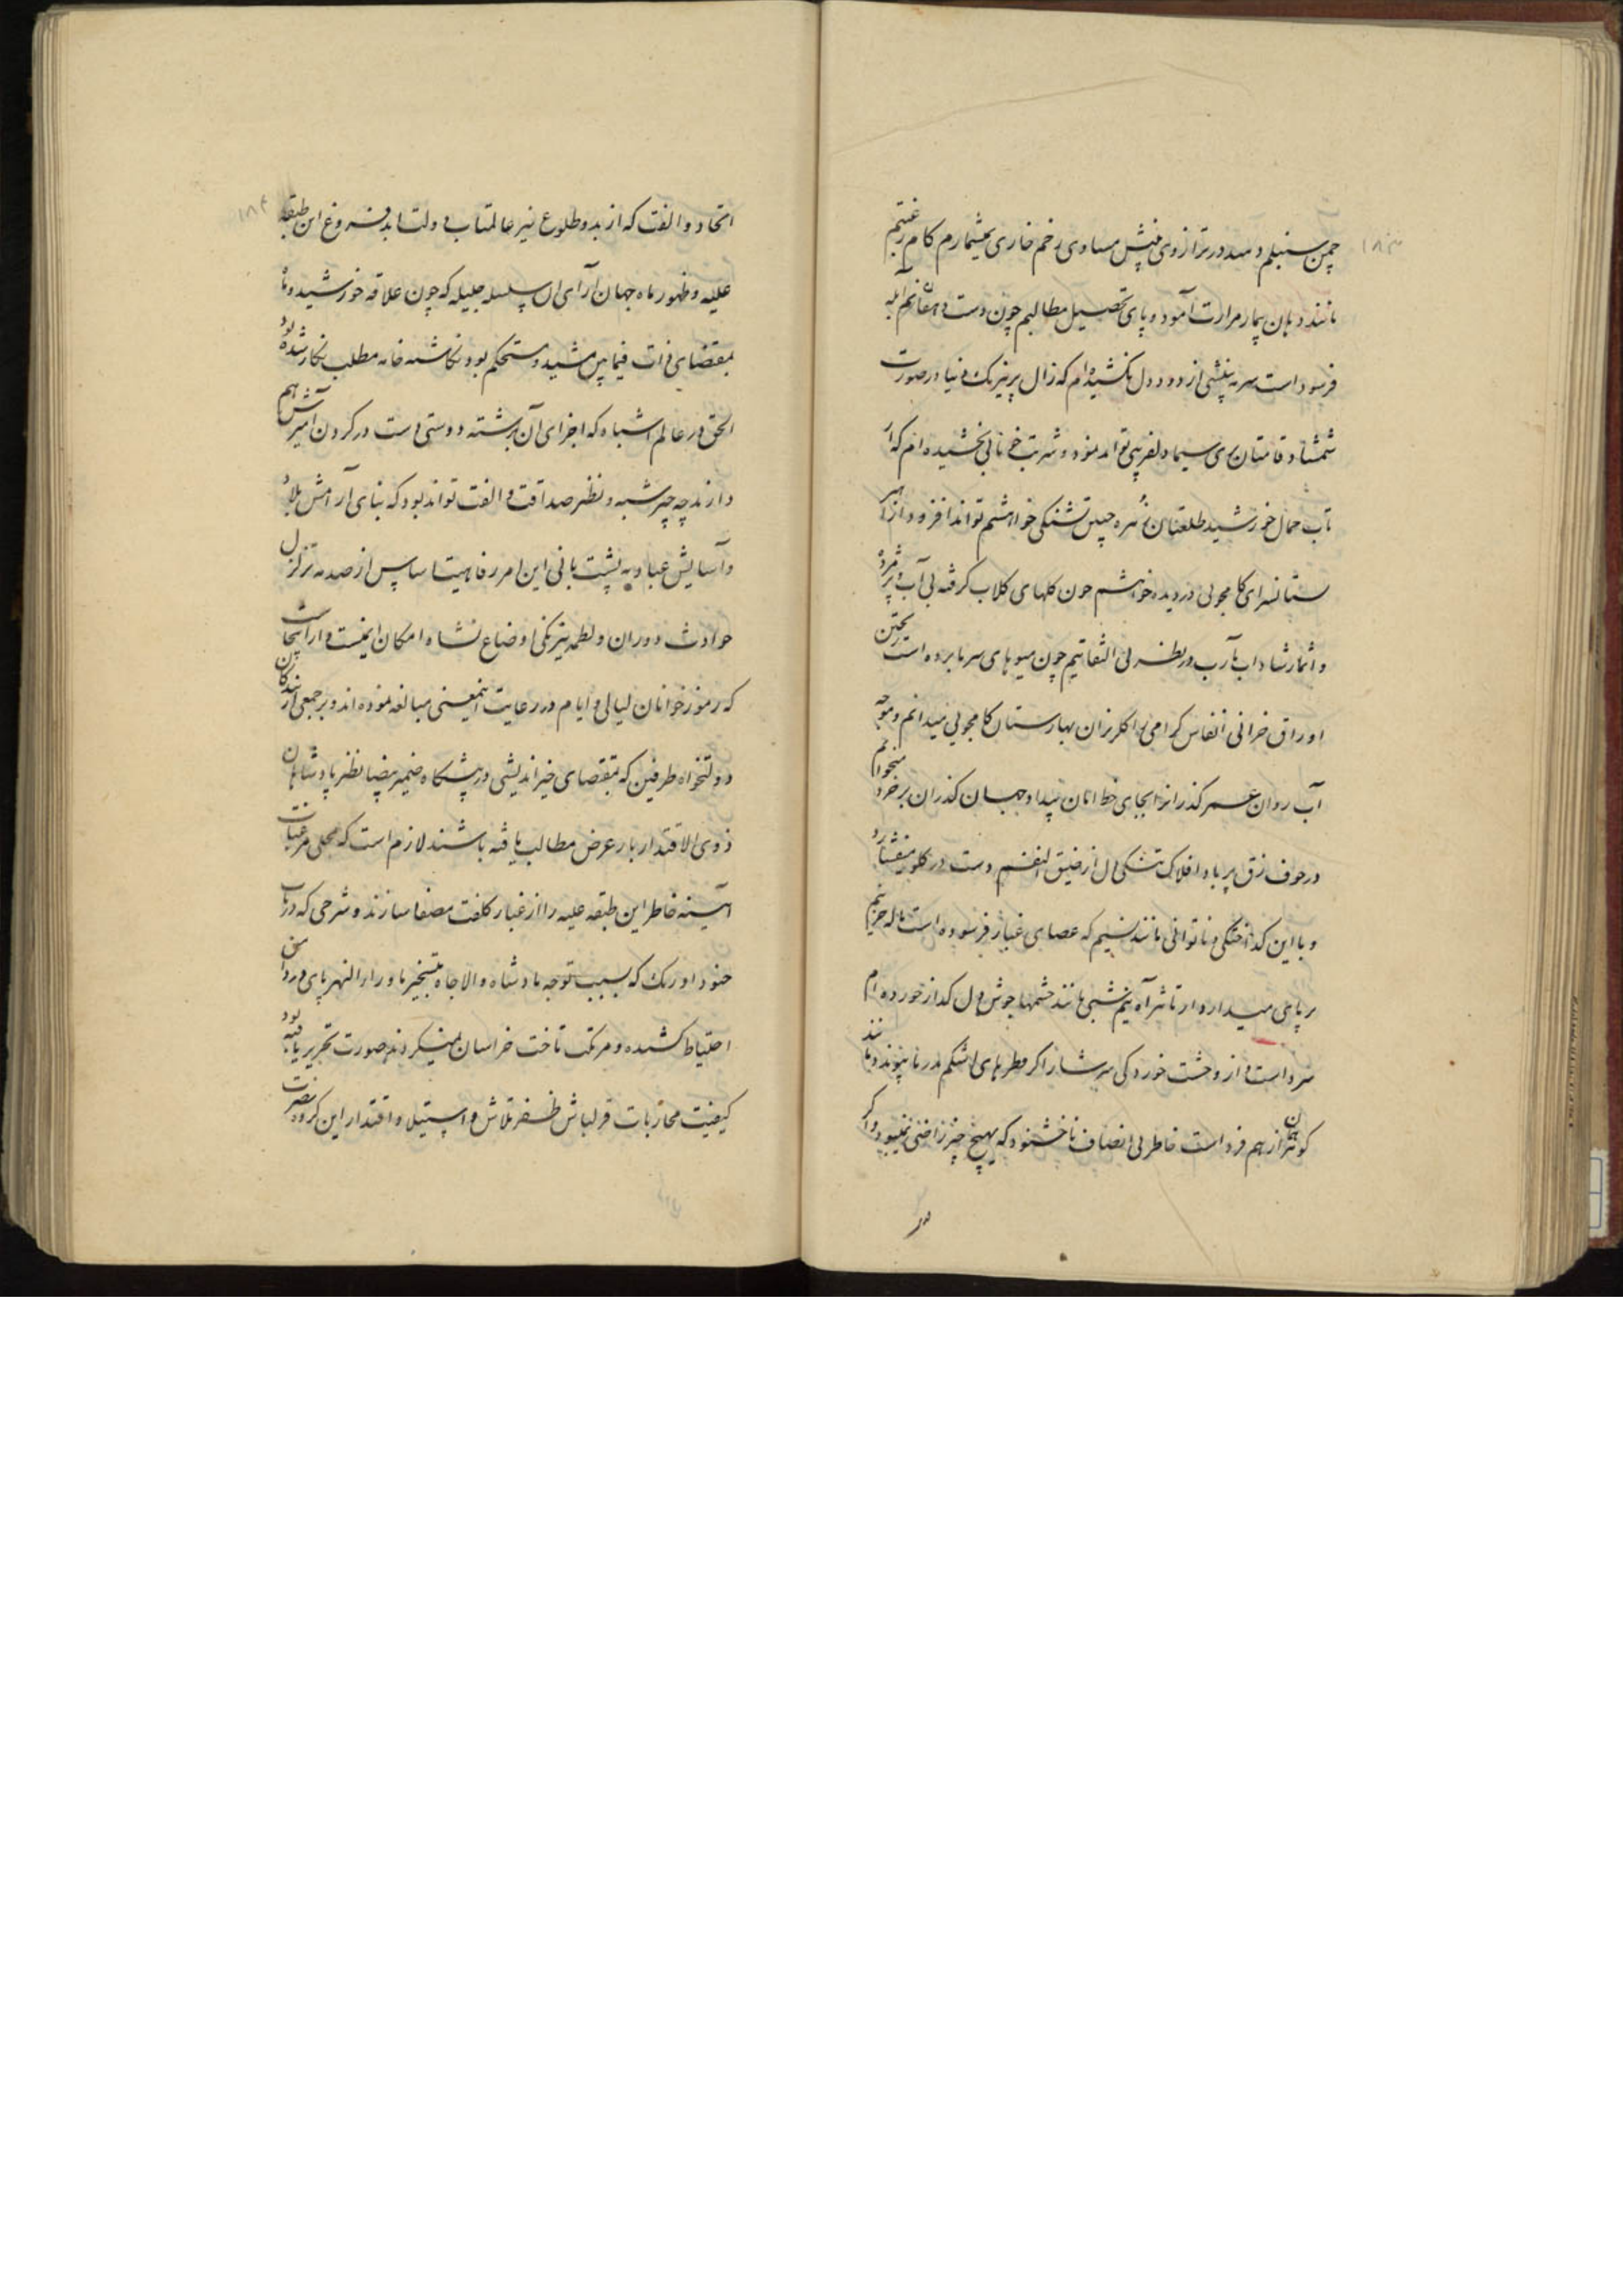 ۱۸۳
چمن سنبلم دهد در ترازوی فیش مساوی زخم خاری بیشمارم کام رغبتم
مانند دهان بیمار مرارت آمود و پای تحصیل مطالبم چون دست دهقانم آبله
فرسود است سرمه بینشی از دود دل نکشیده‌ام که زال پر نیرنک دنیا در صورت
شمشاد قامتان پری سیما دلفریبی تواند نمود و شربت خونابی نچشیده‌ام که از
تاب جمال خورشید طلعتان زهره جبین تشنکی خواهشم تواند افزود ازهار
ستانسرای کامجویی در دیده خواهشم چون کلهای کلاب کرفته بی آب و پژمرده
و اثمار شاداب مآرب در نظر بی التفاتیم چون میوهای سرما برده است ریختن
اوراق خزانی انفاس کرامی را کلریزان بهارستان کامجویی میدانم و موجه
آب روان عمر کذرانرا بجای خط امان بیداد جهان کذران بر خود میخوانم
در جوف زق پر باد افلاک تنکی دل از ضیق النفسم دست در کلو میفشارد
و با این کداختکی و ناتوانی مانند نسیم که عصای غبار فرسوده است ناله حزینم
بر پای میدارد از تاثیر آه نیم شبی مانند چشمها جوش دل کداز خورده‌ام
سرد است و از وحشت خوردکی سرشار اکر قطرهای اشکم در نا پیوندد مانند
کوهر از هم فرد است خاطر بی انصاف ناخشنود که بهیچ چیز راضی نمیبود اکر
۱۸۴
اتحاد و الفت که از بدو طلوع نیر عالمتاب دولت ابد فروغ این طبقه
علیه و ظهور ماه جهان آرای آن سلسله جلیله که چون علاقه خورشید و ماه
بمقتضای ذات فیما بین مشید و مستحکم بود نکاشته خامه مطلب نکار شده بود
الحق در عالم اشباه که اجزای آن برشته دوستی دست در کردن آمیزش هم
دارند چه چیز شبه و نظیر صداقت و الفت تواند بود که بنای آرامش بلاد
و آسایش عباد به پشت بانی این امر رفاهیت اساس از صدمه تزلزل
حوادث دوران و لطمه نیرنکی اوضاع نشاه امکان ایمنست و از آنجاست
که رموز خوانان لیالی و ایام در رعایت اینمعنی مبالغه نموده‌اند و بر جمعی از بندکان
دولتخواه طرفین که بمقتضای خیراندیشی در پیشکاه ضمیر بیضا نظیر پادشاهان
ذوی الاقتدار بار عرض مطالب یافته باشند لازم است که محلی مرغبات
آیینه خاطر این طبقه علیه را از غبار کلفت مصفا سازند و شرحی که در باب
جنود اوزبک که بسبب توجه پادشاه والا جاه بتسخیر ماوراء النهر پای در دامن
احتیاط کشیده و مرتکب تاخت خراسان نمیکردند صورت تحریر یافته بود
کیفیت محاربات قزلباش ظفر تلاش و استیلا و اقتدار این کروه نصرت